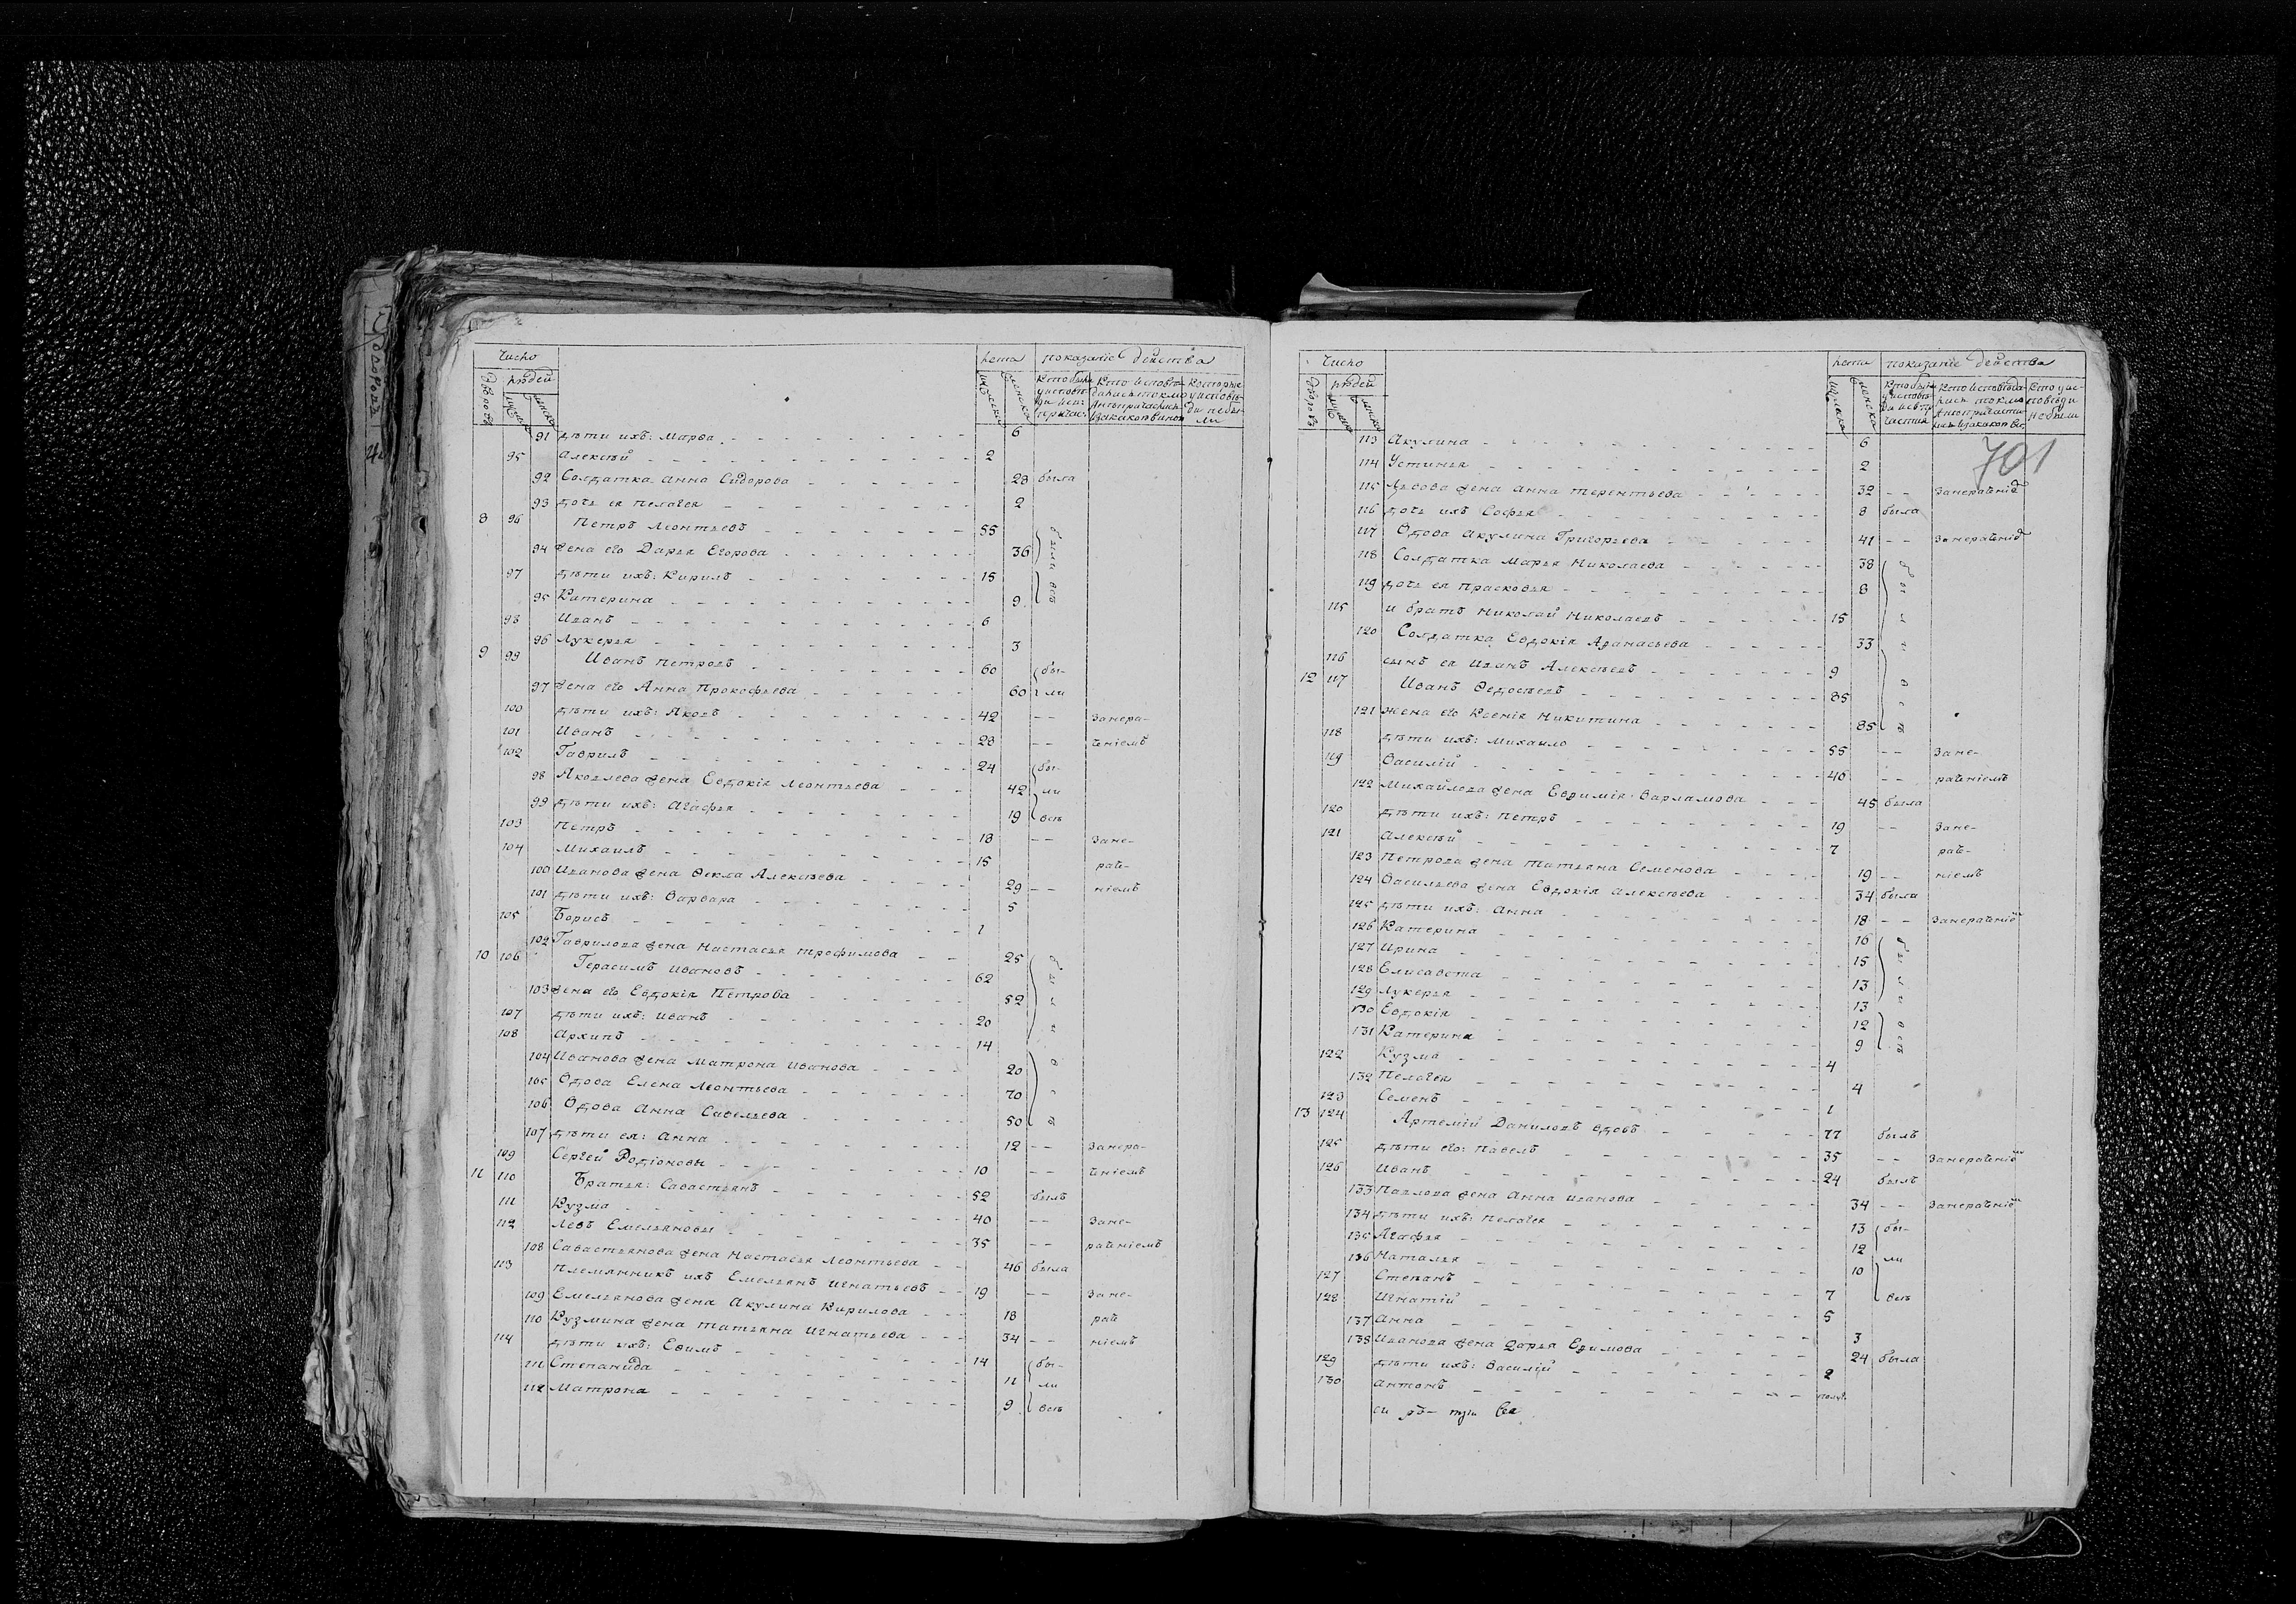 Число
лета
показание действа
людей
91 дѣти ихъ: Марѳа 6
95 Алексѣй 2
92 Солдатка Анна Сидорова 28 была
93 дочь ея Пелагея 2
8 96 Петръ Леонтьевъ 55
94 жена его Дарья Егорова 36 были всѣ
97 дѣти ихъ: Кирилъ 15
95 Катерина 9
98 Иванъ 6
96 Лукерья 3
9 99 Иванъ Петровъ 60 бы-
97 жена его Анна Прокофьева 60 ли
100 дѣти ихъ: Яковъ 42 -- Занера-
101 Иванъ 28 -- ченіемъ
102 Гаврилъ 24 бы-
98 Яковлева жена Евдокія Леонтьева 42 ли
99 дѣти ихъ: Агафья 19 всѣ
103 Петръ 18 -- Зане-
104 Михаилъ 15 раче-
100 Иванова жена Ѳекла Алексѣева 29 -- ніемъ
101 дѣти ихъ: Варвара 5
105 Борисъ 1
102 Гаврилова жена Настасья Трофимова 25
10 106 Герасимъ Ивановъ 62
103 жена его Евдокія Петрова 52
107 дѣти ихъ: Иванъ 20
108 Архипъ 14
104 Иванова жена Матрона Иванова 20
105 Вдова Елена Леонтьева 70
106 Вдова Анна Савельева 50
107 дѣти ея: Анна 12 -- Занера-
109 Сергей Родіоновы 10 -- ченіемъ
11 110 Братья: Савастьянъ 52 былъ
111 Кузма 40 -- Зане-
112 Левъ Емельяновы 35 -- раченіемъ
108 Савастьянова жена Настасья Леонтьева 46 была
113 Племянникъ ихъ Емельянъ Игнатьевъ 19 -- Зане-
109 Емельянова жена Акулина Кирилова 18 раче
110 Кузмина жена Татьяна Игнатьева 34 -- ніемъ
114 дѣти ихъ: Ефимъ 14 бы-
111 Степанида 11 ли
112 Матрона 9 всѣ
Число
лета
показание действа
людей
701
113 Акулина 6
114 Устинья 2
115 Львова жена Анна Терентьева 32 -- Занераченіе
116 дочь ихъ Софья 8 была
117 Вдова Акулина Григорьева 41 -- Занераченіе
118 Солдатка Марья Николаева 38
119 дочь ея Прасковья 8
115 и братъ Николай Николаевъ 15
120 Солдатка Евдокія Аѳанасьева 33
116 сынъ ея Иванъ Алексѣевъ 9
12 117 Иванъ Ѳедосѣевъ 85
121 жена его Ксенія Никитина 85
118 дѣти ихъ: Михаило 55 -- Зане-
119 Василій 40 -- раченіемъ
122 Михайлова жена Евфимія Варламова 45 была
120 дѣти ихъ: Петръ 19 -- Зане-
121 Алексѣй 7 раче-
123 Петрова жена Татьяна Семенова 19 -- ніемъ
124 Васильева жена Евдокія Алексѣева 34 была
125 дѣти ихъ: Анна 18 -- Занераченіе
126 Катерина 16
127 Ирина 15
128 Елисавета 13
129 Лукерья 13
130 Евдокія 12
131 Катерина 9
122 Кузма 4
132 Пелагея 4
123 Семенъ 1
13 124 Артемій Даниловъ вдовъ 77 былъ
125 дѣти его: Павелъ 35 -- Занераченіе
126 Иванъ 24 былъ
133 Павлова жена Анна Иванова 34 -- Занераченіе
134 дѣти ихъ: Пелагея 13 бы-
135 Агафья 12
136 Наталья 10 ли
127 Степанъ 7 всѣ
128 Игнатій 5
137 Анна 3
138 Иванова жена Дарья Ефимова 24 была
129 дѣти ихъ: Василій 2
130 Антонъ полуг.